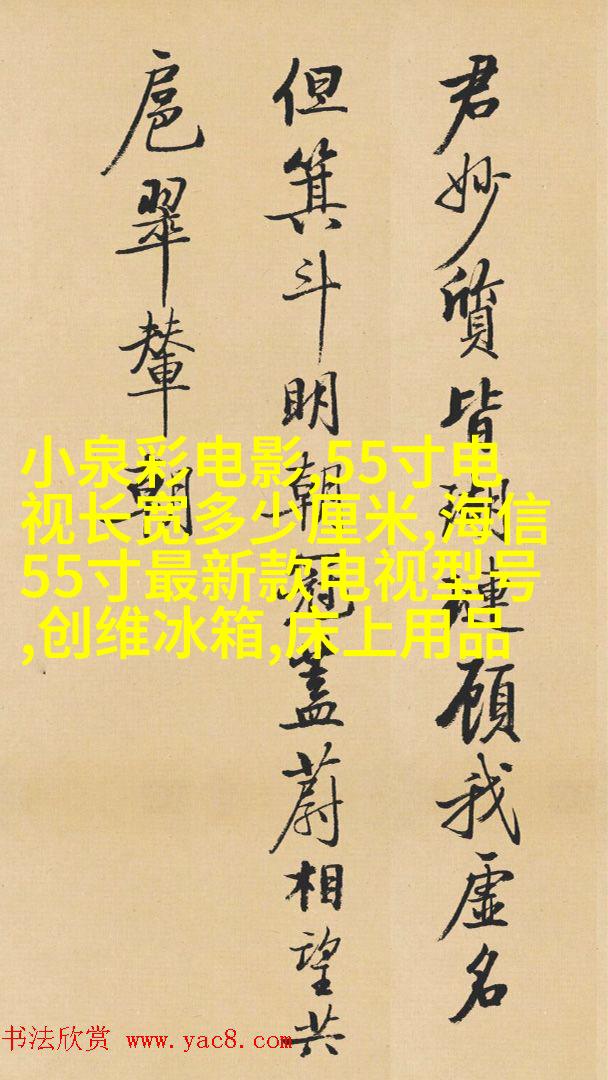 君妙質皆瑚璉顧我虛名
但箕斗明朝冠蓋蔚相望共
扈翠輦朝
小泉彩电影,55寸电
视长宽多少厘米,海信
55寸最新款电视型号
,创维冰箱,床上用品
书法欣赏 www.yac8.com